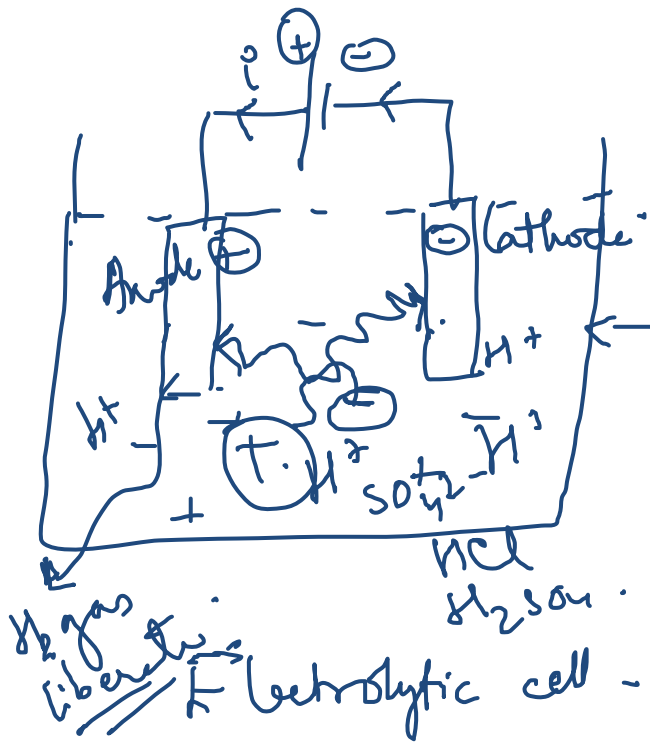 i + -
Anode + - Cathode
H+ H+
-
+ H+ SO4 2- H+
+
HCl
H2SO4
H2 gas
liberate
Electrolytic cell